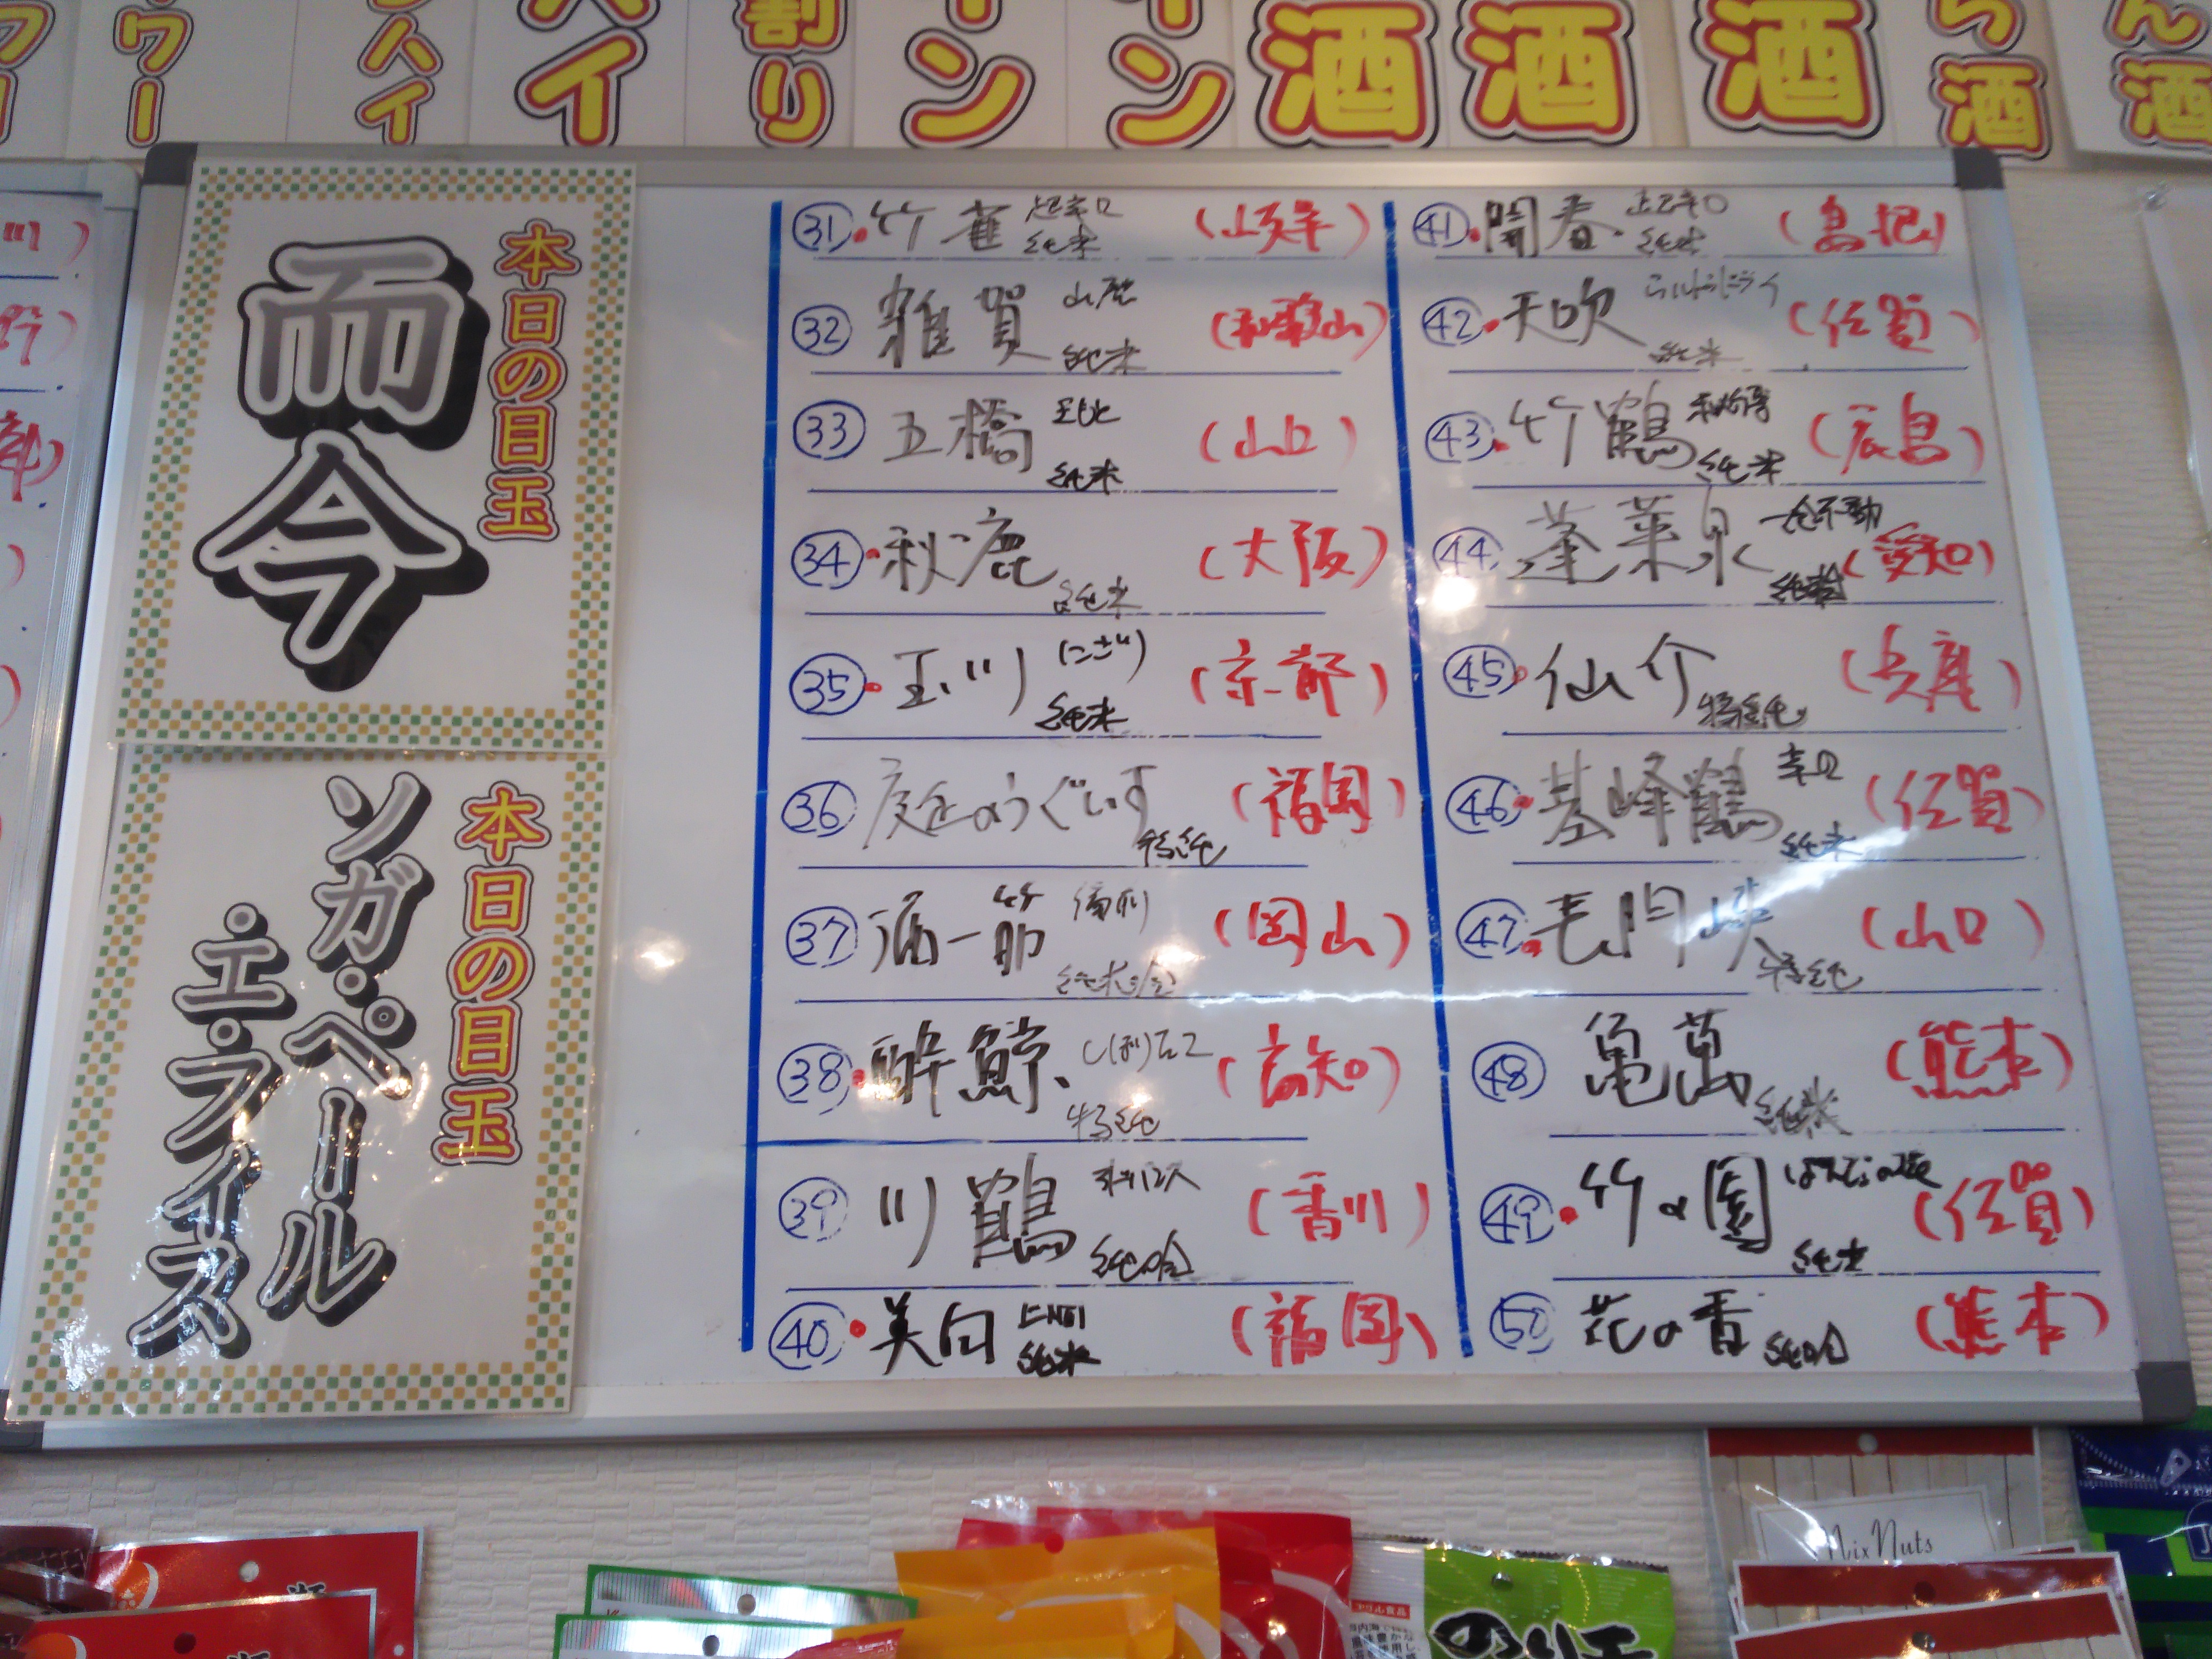 ワー
ハイ
ハイ
割り
イン
イン
酒
酒
酒
ら酒
ん酒
本日の目玉
而今
本日の目玉
ソガ・ペール
エ・フィス
㉛ 竹雀 超辛口 純米 (岐阜)
㉜ 雑賀 山廃 純米 (和歌山)
㉝ 五橋 純米 (山口)
㉞ 秋鹿 純米 (大阪)
㉟ 玉川 にごり 純米 (京都)
㊱ 庭のうぐいす 特純 (福岡)
㊲ 酒一筋 備前 純米吟 (岡山)
㊳ 酔鯨 しぼりたて 特純 (高知)
㊴ 川鶴 純吟 (香川)
㊵ 美田 山廃 純米 (福岡)
㊶ 開春 超辛口 純米 (島根)
㊷ 天吹 純米 (佐賀)
㊸ 竹鶴 秘傳 純米 (広島)
㊹ 蓬莱泉 一念不動 (愛知)
㊺ 仙介 特純 (兵庫)
㊻ 基峰鶴 辛口 純米 (佐賀)
㊼ 長門峡 特純 (山口)
㊽ 亀萬 純米 (熊本)
㊾ 竹の園 純米 (佐賀)
㊿ 花の香 純吟 (熊本)
Mix Nuts
のり天